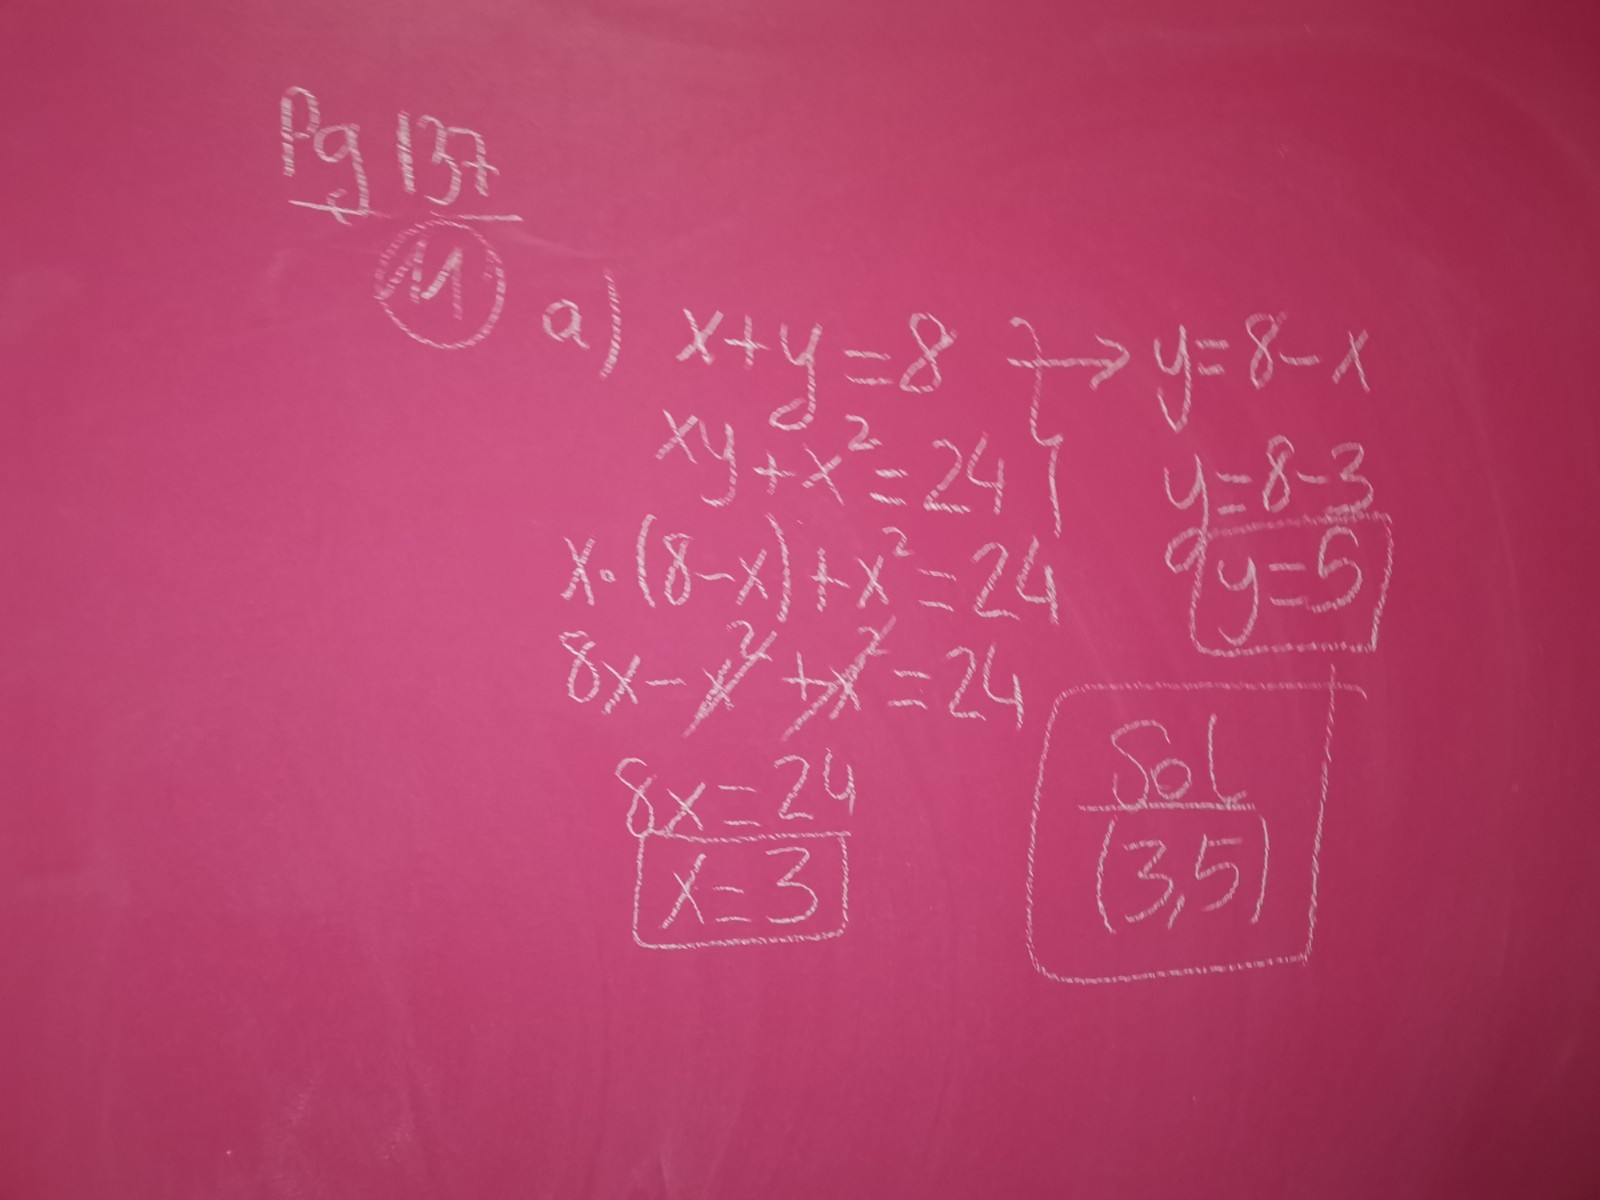 Pg 137
11 a) x+y=8 } → y=8-x
xy+x²=24
y=8-3
x·(8-x)+x²=24
y=5
8x-x²+x²=24
8x=24
x=3
Sol
(3,5)